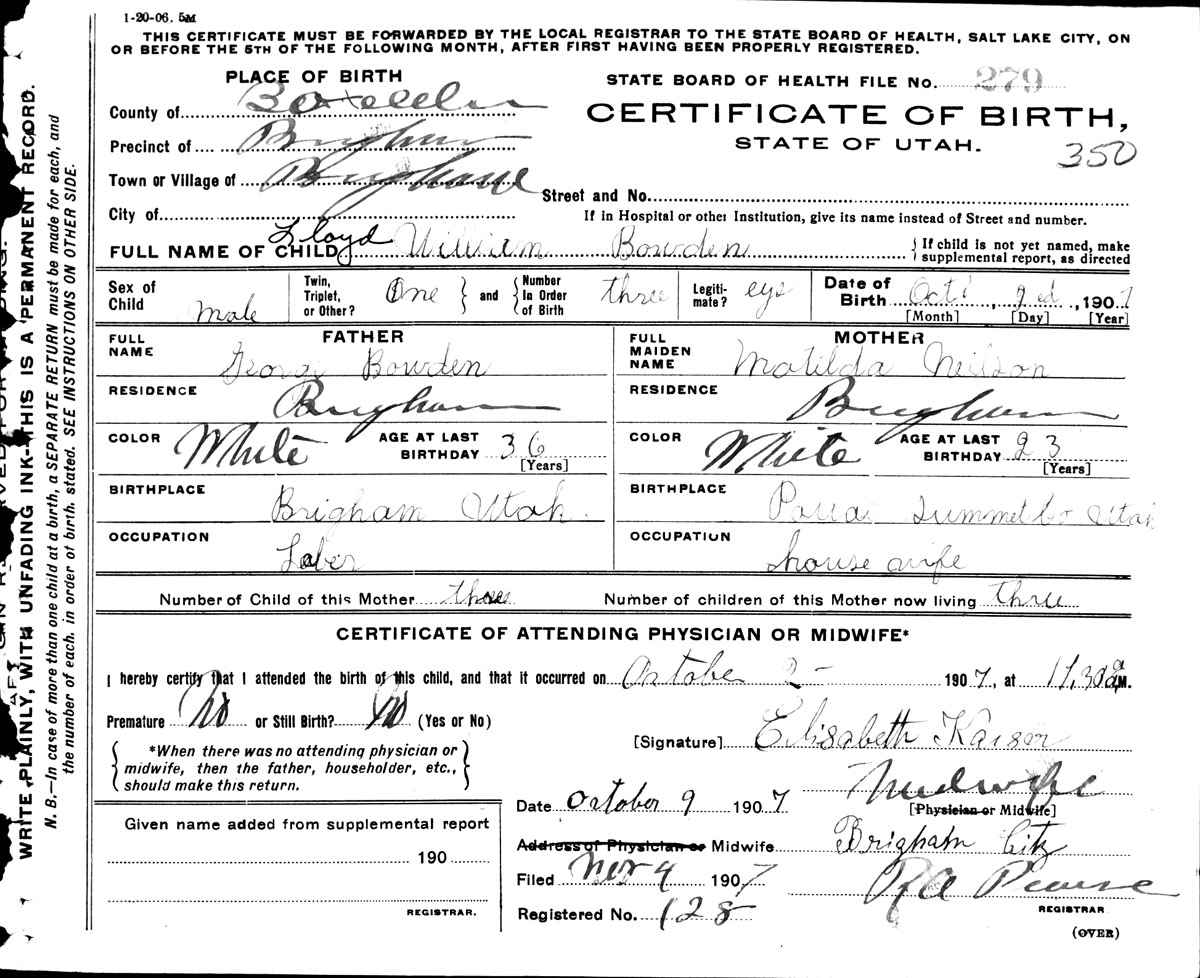 1-20-06. 5M
THIS CERTIFICATE MUST BE FORWARDED BY THE LOCAL REGISTRAR TO THE STATE BOARD OF HEALTH, SALT LAKE CITY, ON
OR BEFORE THE 5TH OF THE FOLLOWING MONTH, AFTER FIRST HAVING BEEN PROPERLY REGISTERED.
PLACE OF BIRTH
STATE BOARD OF HEALTH FILE No. 279
County of Boxelder
CERTIFICATE OF BIRTH,
Precinct of Brigham
STATE OF UTAH.
350
Town or Village of Brigham
Street and No.
City of
If in Hospital or other Institution, give its name instead of Street and number.
FULL NAME OF CHILD Lloyd William Bowden
If child is not yet named, make
supplemental report, as directed
Sex of Child Male
Twin, Triplet, or Other? One
and Number In Order of Birth three
Legiti- mate? eys
Date of Birth Oct 2ed, 1907
[Month] [Day] [Year]
FATHER
MOTHER
FULL NAME George Bowden
FULL MAIDEN NAME Matilda Neilson
RESIDENCE Brigham
RESIDENCE Brigham
COLOR White AGE AT LAST BIRTHDAY 36 [Years]
COLOR White AGE AT LAST BIRTHDAY 23 [Years]
BIRTHPLACE Brigham Utah.
BIRTHPLACE Summet Co Utah
OCCUPATION Laber
OCCUPATION house wife
Number of Child of this Mother three
Number of children of this Mother now living three
CERTIFICATE OF ATTENDING PHYSICIAN OR MIDWIFE*
I hereby certify that I attended the birth of this child, and that it occurred on October 2 - 1907, at 11,30 a M.
Premature No or Still Birth? No (Yes or No)
[Signature] Elisabeth Kaiser
*When there was no attending physician or
midwife, then the father, householder, etc.,
should make this return.
Midwife
Date October 9 1907
[Physician or Midwife]
Given name added from supplemental report
Address of Physician or Midwife Brigham City
190
Filed Nov 4 1907
R A Pearse
REGISTRAR.
Registered No. 128
REGISTRAR.
(OVER)
WRITE PLAINLY, WITH UNFADING INK—THIS IS A PERMANENT RECORD.
N. B.—In case of more than one child at a birth, a SEPARATE RETURN must be made for each, and
the number of each, in order of birth, stated. SEE INSTRUCTIONS ON OTHER SIDE.